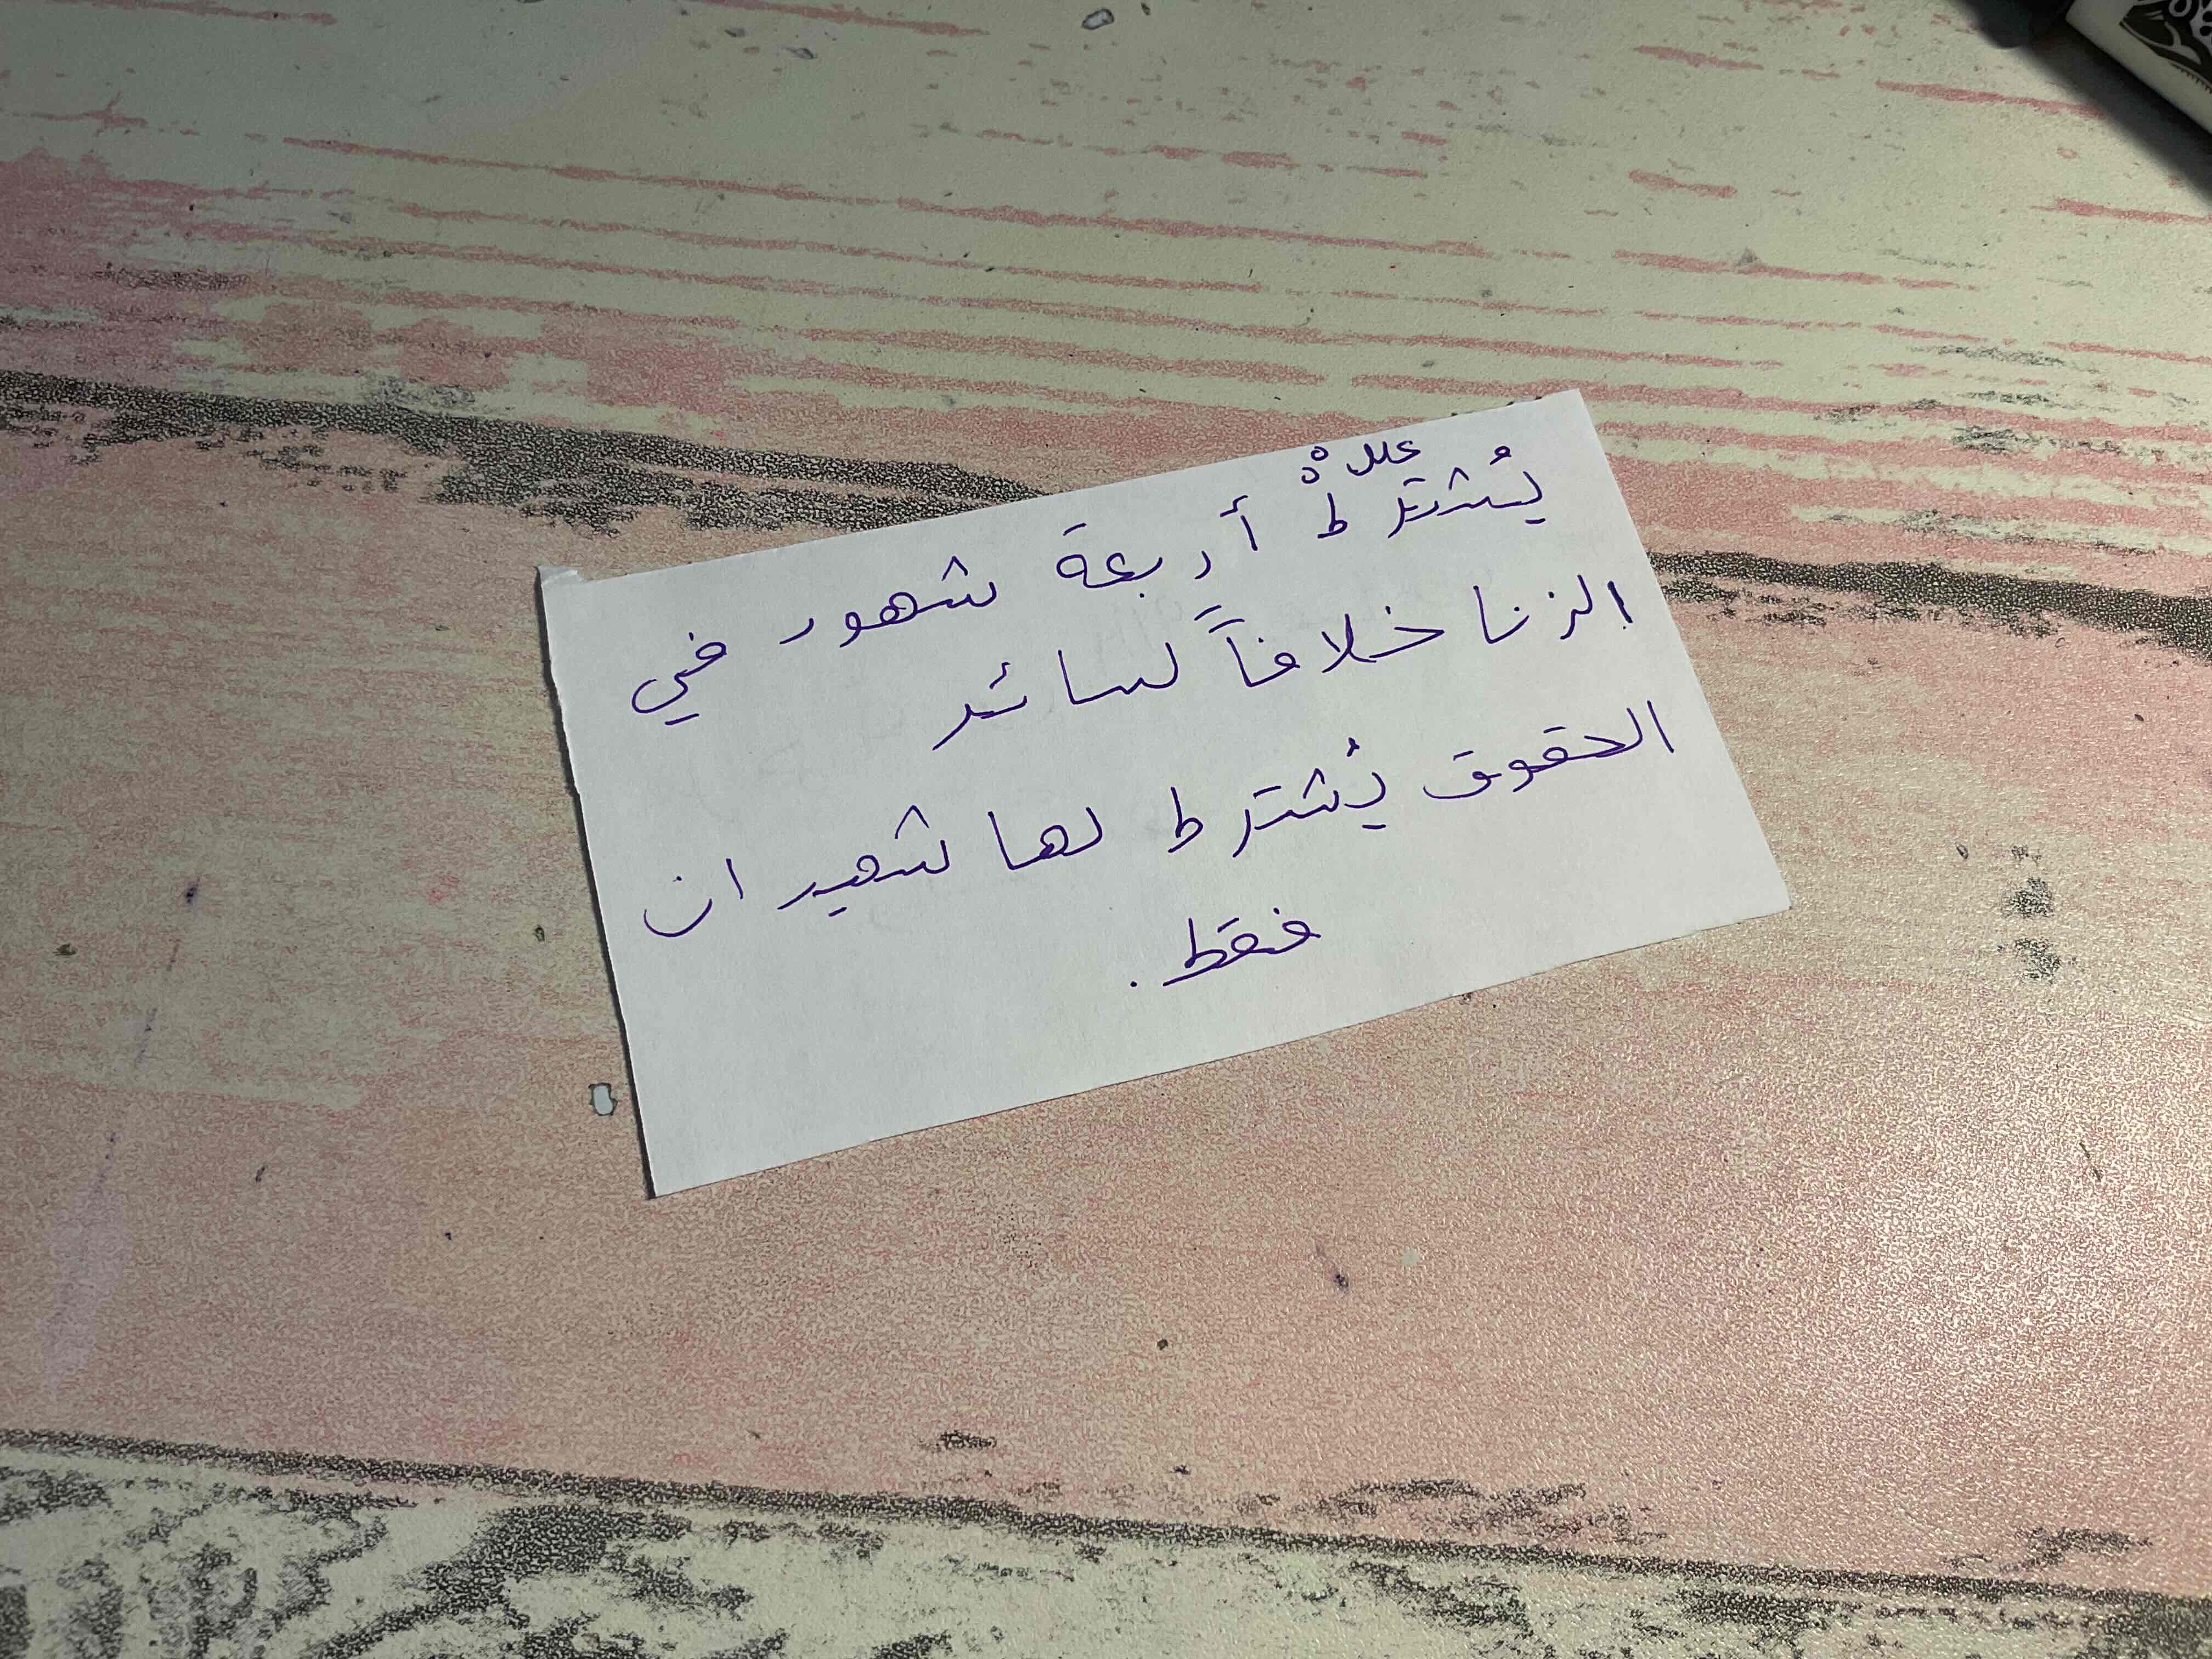 يُشترطْ أربعة شهود في
الزنا خلافاً لسائر
الحقوق يُشترط لها شهيدان
فقط.